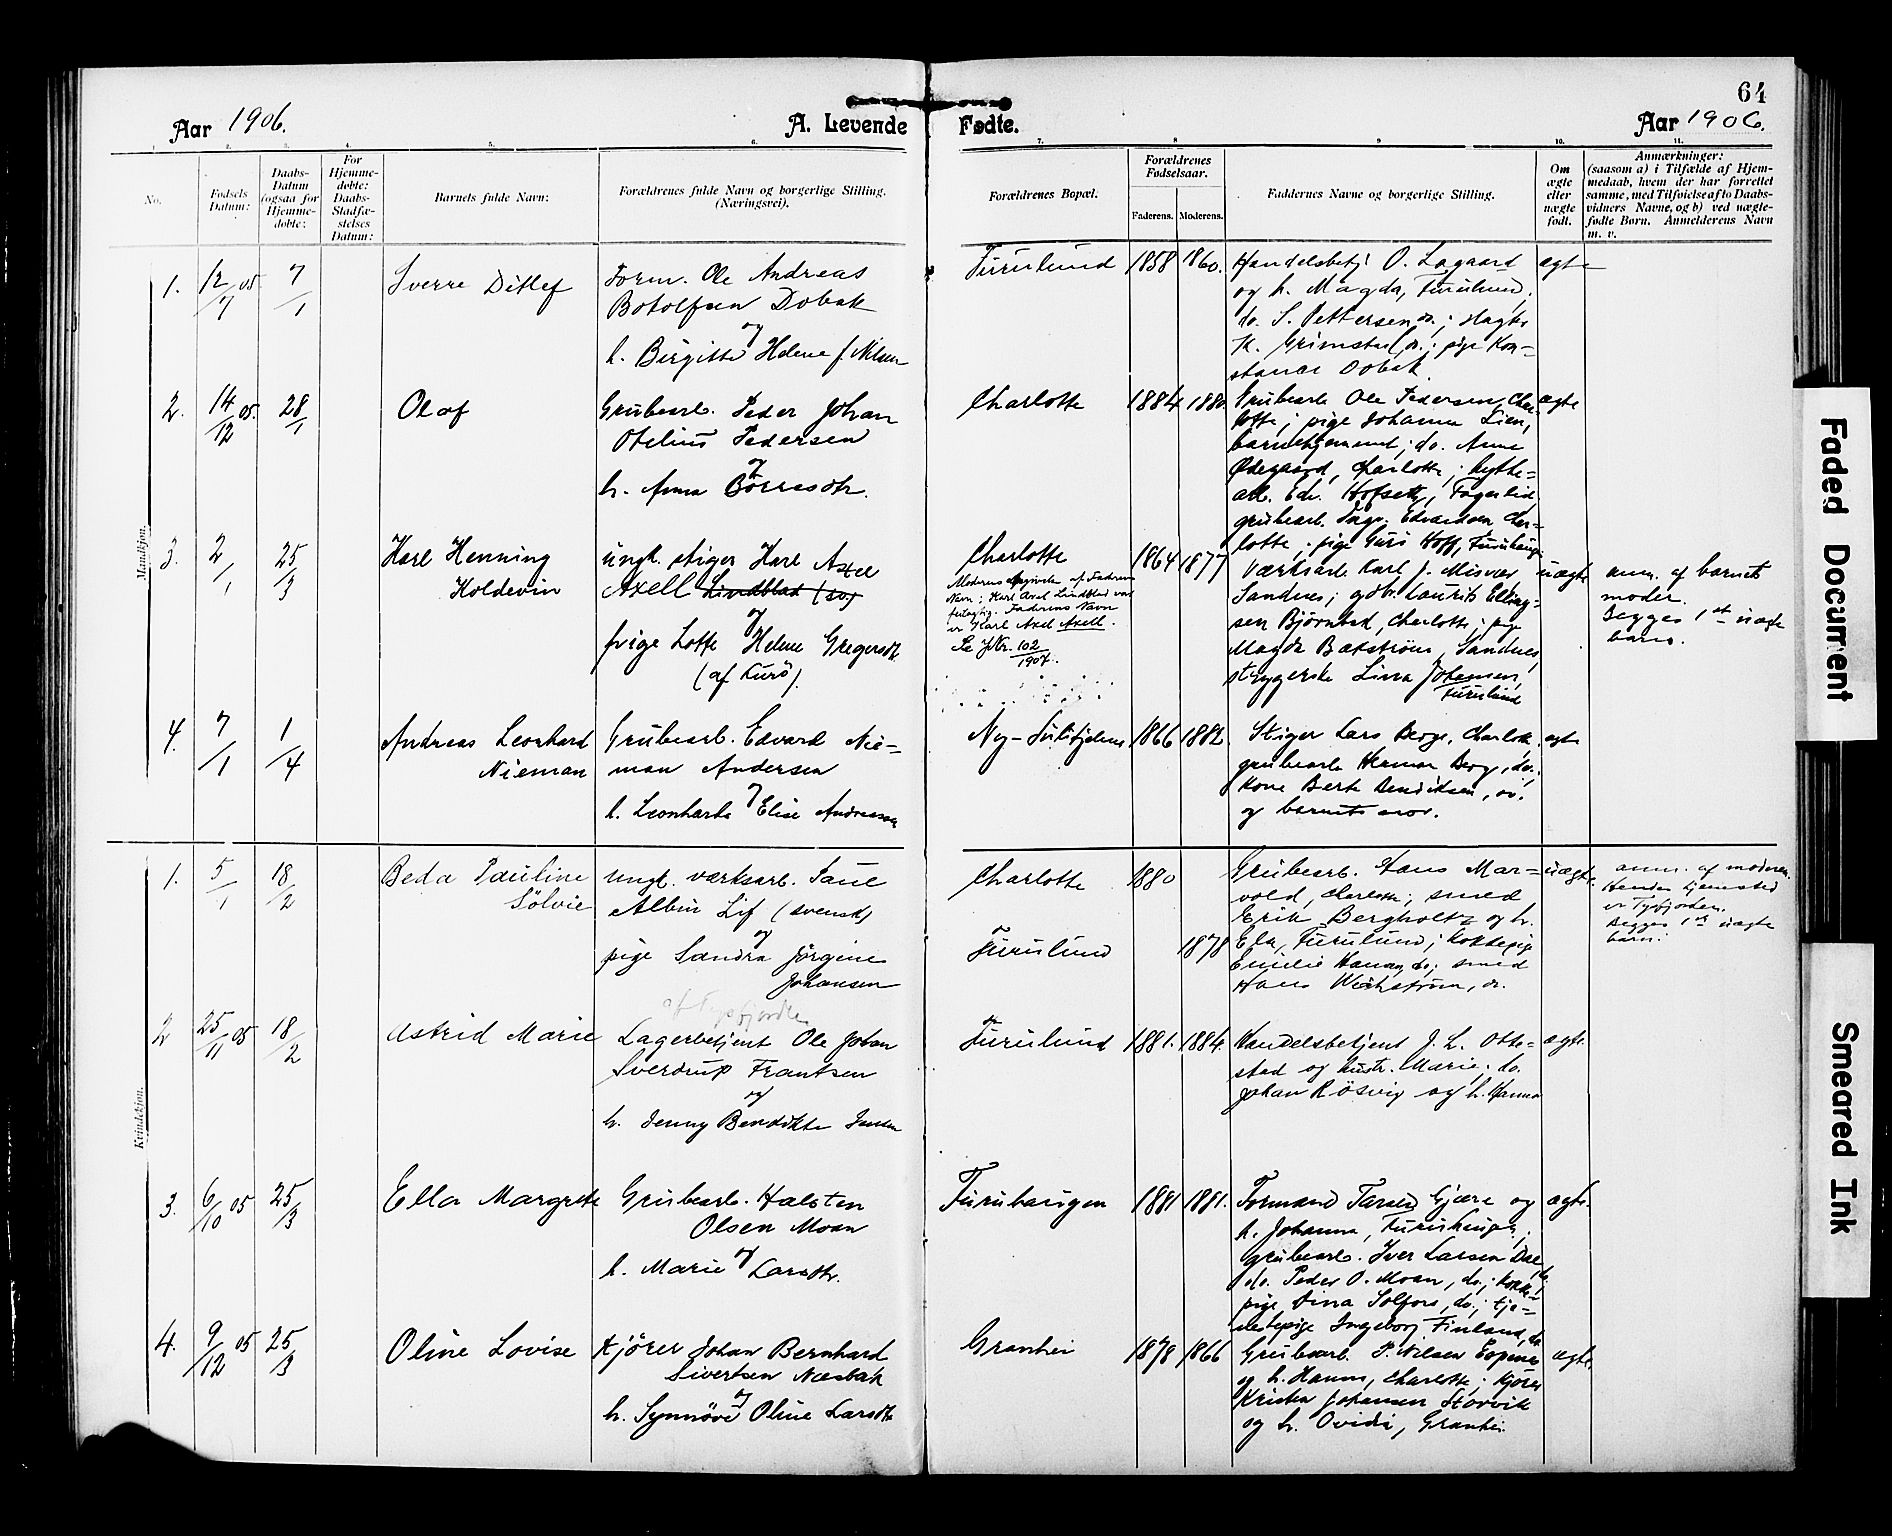 64
Aar 1906.
A. Levende Fødte.
Aar 1906.
1. 2. 3. 4. 5. 6. 7. 8 9 10. 11.
No.
Fødsels Datum:
Daabs-Datum (ogsaa for Hjemme-døbte:
For Hjemme-døbte: Daabs-Stadfæ-stelses Datum:
Barnets fulde Navn:
Forældrenes fulde Navn og borgerlige Stilling. (Næringsvei).
Forældrenes Bopæl.
Forældrenes Fødselsaar.
Faderens. Moderens.
Faddernes Navne og borgerlige Stilling.
Om ægte eller uægte født.
Anmærkninger:
(saasom a) i Tilfælde af Hjem-
medaab, hvem der har forrettet
samme, med Tilføielse af to Daabs-
vidners Navne, og b) ved uægte-
fødte Børn. Anmelderens Navn
m. v.
Mandkjøn.
1. 12/7 05 7/1 Sverre Ditlef
Form. Ole Andreas
Botolfsen Dobak
og
h. Birgitte Helene f. Nilsen
Furulund 1858 1860.
Handelsbetj. O. Lagaard
og h. Magda, Furulund;
do. S. Pettersen, do.; slagter
K. Grimstad, do.; pige Kon-
stance Dobak
ægte
2. 14/12 05. 28/1 Olaf
Grubearb. Peder Johan
Otelius Pedersen
og
h. Anna Børresdtr.
Charlotte 1884 1880.
Grubearb. Ole Pedersen, Char-
lotte; pige Johanna Lien,
barnehjemmet; do. Anne
Ødegaard, Charlotte; hytte-
arb. Edv. Hofseth, Fagerlid
grubearb. Ingv. Edvardsen Char-
lotte; pige Guri Hoff, Furuhaug
ægte
3. 2/1 25/3 Karl Henning
Holdevin
ungk. stiger Karl Axel
Axell Lindblad (sv.)
og
pige Lotte Helene Gregersdtr.
(af Kurø).
Charlotte 1864 1877
Moderens Angivelse af Faderens
Navn; Karl Axel Lindblad var
feilagtig. Faderens Navn
er Karl Axel Axell.
Se JNr. 102/1907.
Værksarb. Karl J. Misvær,
Sandnes; gdbr. Laurits Elling-
sen Bjørnbak, Charlotte; pige
Magda Bækstrøm, Sandnes,
strygerske Lina Johansen,
Furulund
uægte
anm. af barnets
moder.
Begges 1st uægte
barn.
4. 7/1 1/4 Andreas Leonhard
Nieman
Grubearb. Edvard Nie-
man Andersen
og
h. Leonharda Elise Andreassen
Ny-Sulitjelma 1866 1882.
Stiger Lars Berge, Charlotte,
grubearb. Herman Berg, do.;
Kone Berte Bendiksen, do.
og barnets mor.
ægte
Kvindekjøn.
1. 5/1 18/2 Beda Pauline
Sølvie
ungk. værksarb. Paul
Albin Lif (svensk)
og
pige Sandra Jørgine
Johansen
af Tysfjorden
Charlotte 1880
Furulund 1878
Grubearb. Hans Mar-
vold, Charlotte; smed
Erik Bergholtz og h.
Ela, Furulund; kokkepige
Emilie Hansen, do; smed
Hans Wickstrøm, do.
uægte.
anm. af moderen.
Hendes hjemsted
er Tysfjorden.
Begges 1st uægte
barn.
2 25/11 05 18/2 Astrid Marie
Lagerbetjent Ole Johan
Sverdrup Frantsen
og
h. Jenny Bendikte Jensen
Furulund 1881. 1884.
Handelsbetjent J. L. Otte-
stad og hustr. Marie; do.
Johan Røsvig og h. Hanna
ægte.
3. 6/10 05 25/3 Ella Margrete
Grubearb. Halsten
Olsen Moan
og
h. Marie Larsdtr.
Furuhaugen 1881 1881.
Formand Tarsen Gjære og
h. Johanna, Furuhaugen;
grubearb. Iver Larsen Dae, do.
do. Peder O. Moan, do.; kokke-
pige Dina Solfors, do.; tje-
nestepige Ingeborg Finland, do
ægte.
4. 9/12 05 25/3 Oline Lovise
Kjører Johan Bernhard
Sivertsen Næsbak
og
h. Synnøve Oline Larsdtr
Granhei 1878 1866
Grubearb. P. Nilsen Espenes
og h. Hanna, Charlotte; kjører
Kristen Johansen Storvik
og h. Ovidia, Granhei.
ægte.
Faded Document
Smeared Ink